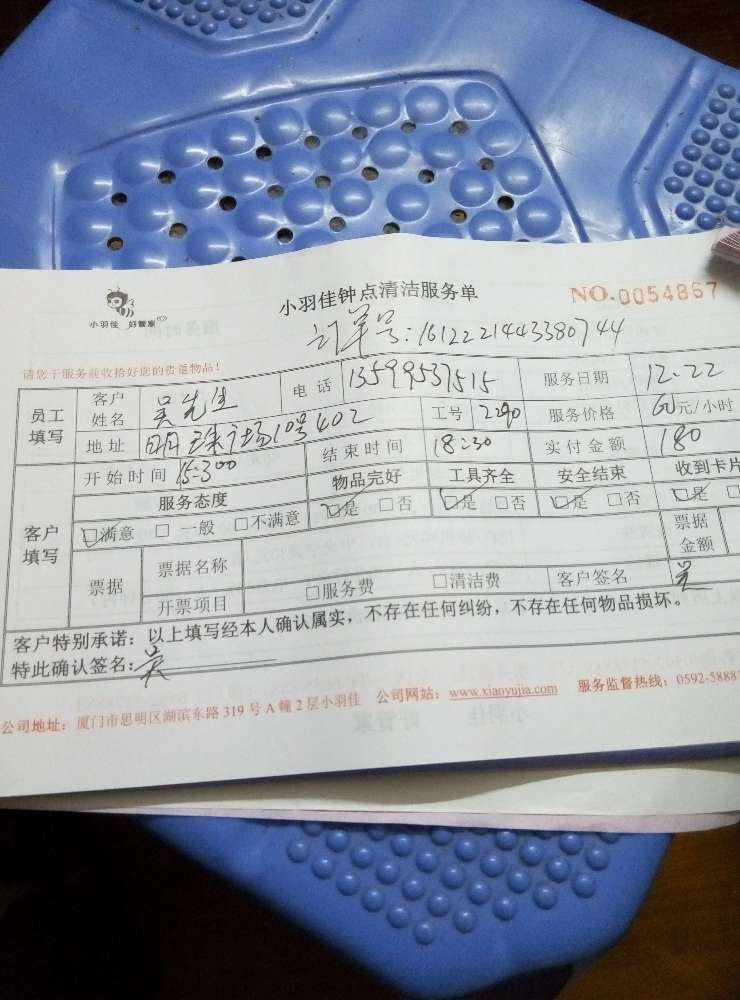 小羽佳 好管家
小羽佳钟点清洁服务单
NO.0054867
订单号:1612221443380744
请您于服务前收拾好您的贵重物品!
员工填写 客户姓名 吴先生 电话 13599537515 服务日期 12.22
地址 明珠广场10号402 工号 2290 服务价格 60元/小时
客户填写 开始时间 15:300 结束时间 18:30 实付金额 180
服务态度 物品完好 工具齐全 安全结束 收到卡片
☑满意 □一般 □不满意 ☑是 □否 ☑是 □否 ☑是 □否 ☑是 □
票据 票据名称 票据金额
开票项目 □服务费 □清洁费 客户签名 吴
客户特别承诺:以上填写经本人确认属实,不存在任何纠纷,不存在任何物品损坏。
特此确认签名:吴
公司地址:厦门市思明区湖滨东路 319 号 A 幢 2 层小羽佳 公司网站:www.xiaoyujia.com 服务监督热线:0592-5888